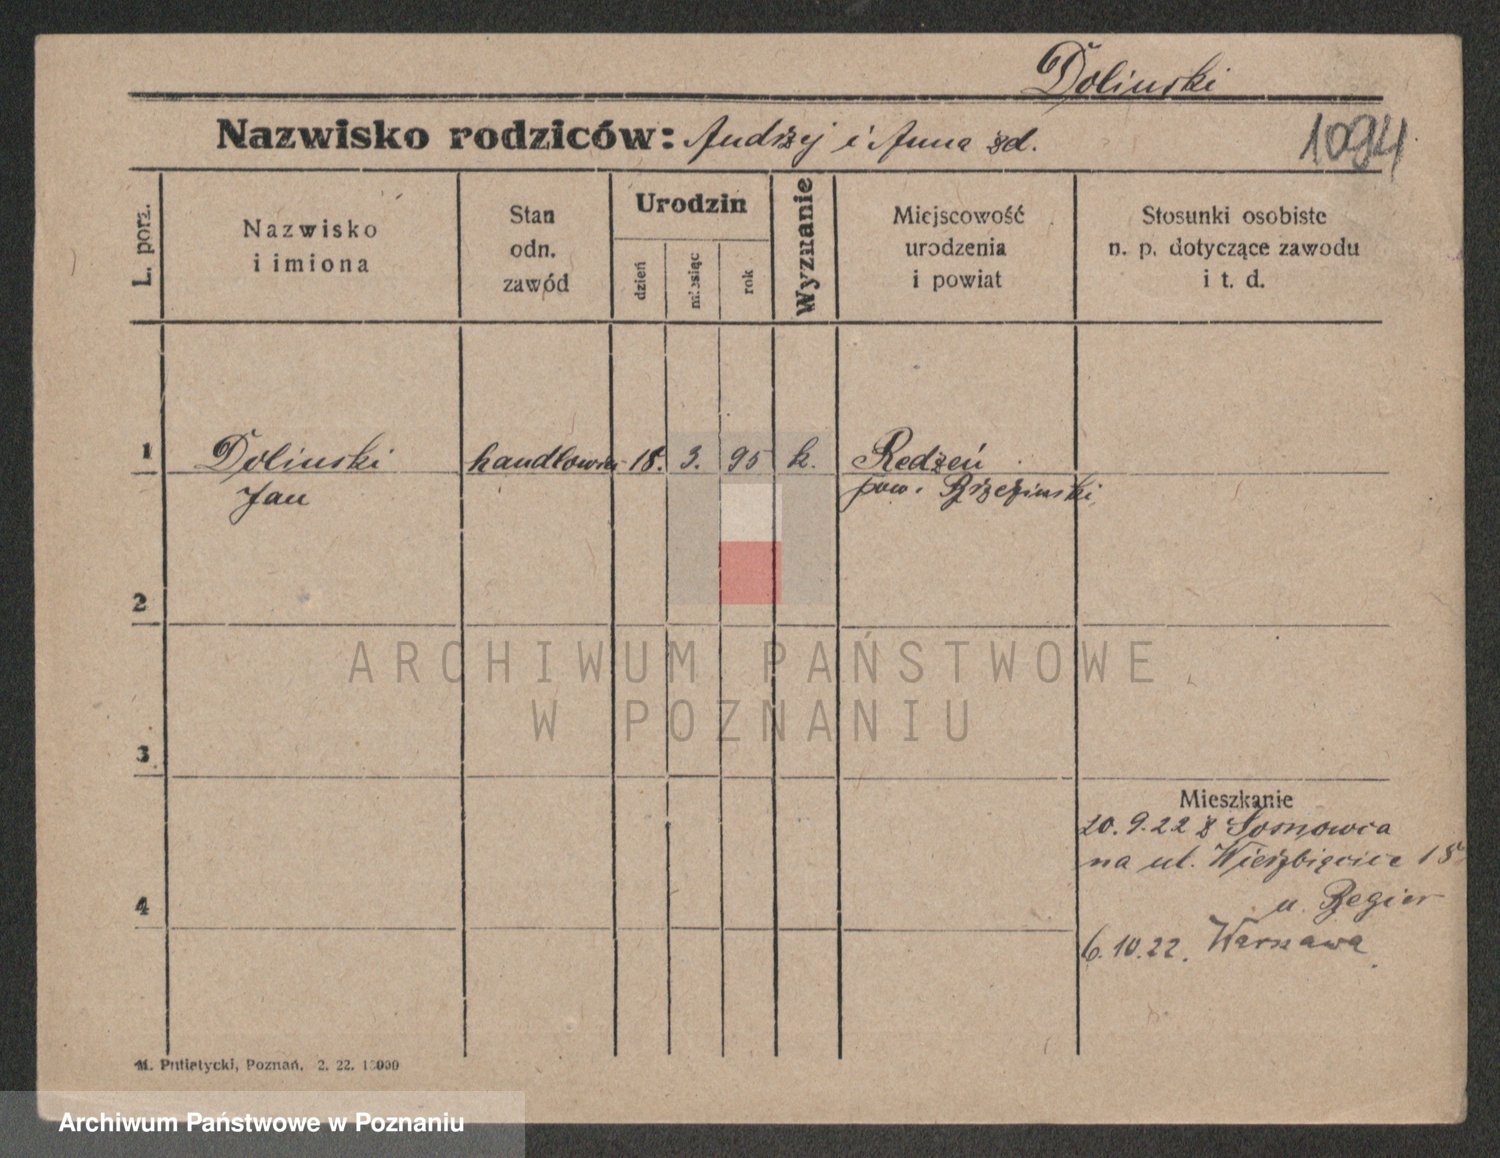 Dolinski
Nazwisko rodziców: Andrzej i Anna zd.
1094
L. porz.
Nazwisko
i imiona
Stan
odn.
zawód
Urodzin
dzień
miesiąc
rok
Wyznanie
Miejscowość
urodzenia
i powiat
Stosunki osobiste
n. p. dotyczące zawodu
i t. d.
1
Dolinski
Jan
handlowiec
18. 3. 95
k.
Redzeń
pow. Brzeziński
2
3
4
Mieszkanie
20. 9. 22 z Sosnowca
na ul. Wierzbięcice 15
u
6. 10. 22. Warszawa
M. Putiatycki, Poznań. 2. 22. 10000
ARCHIWUM PAŃSTWOWE
W POZNANIU
Archiwum Państwowe w Poznaniu